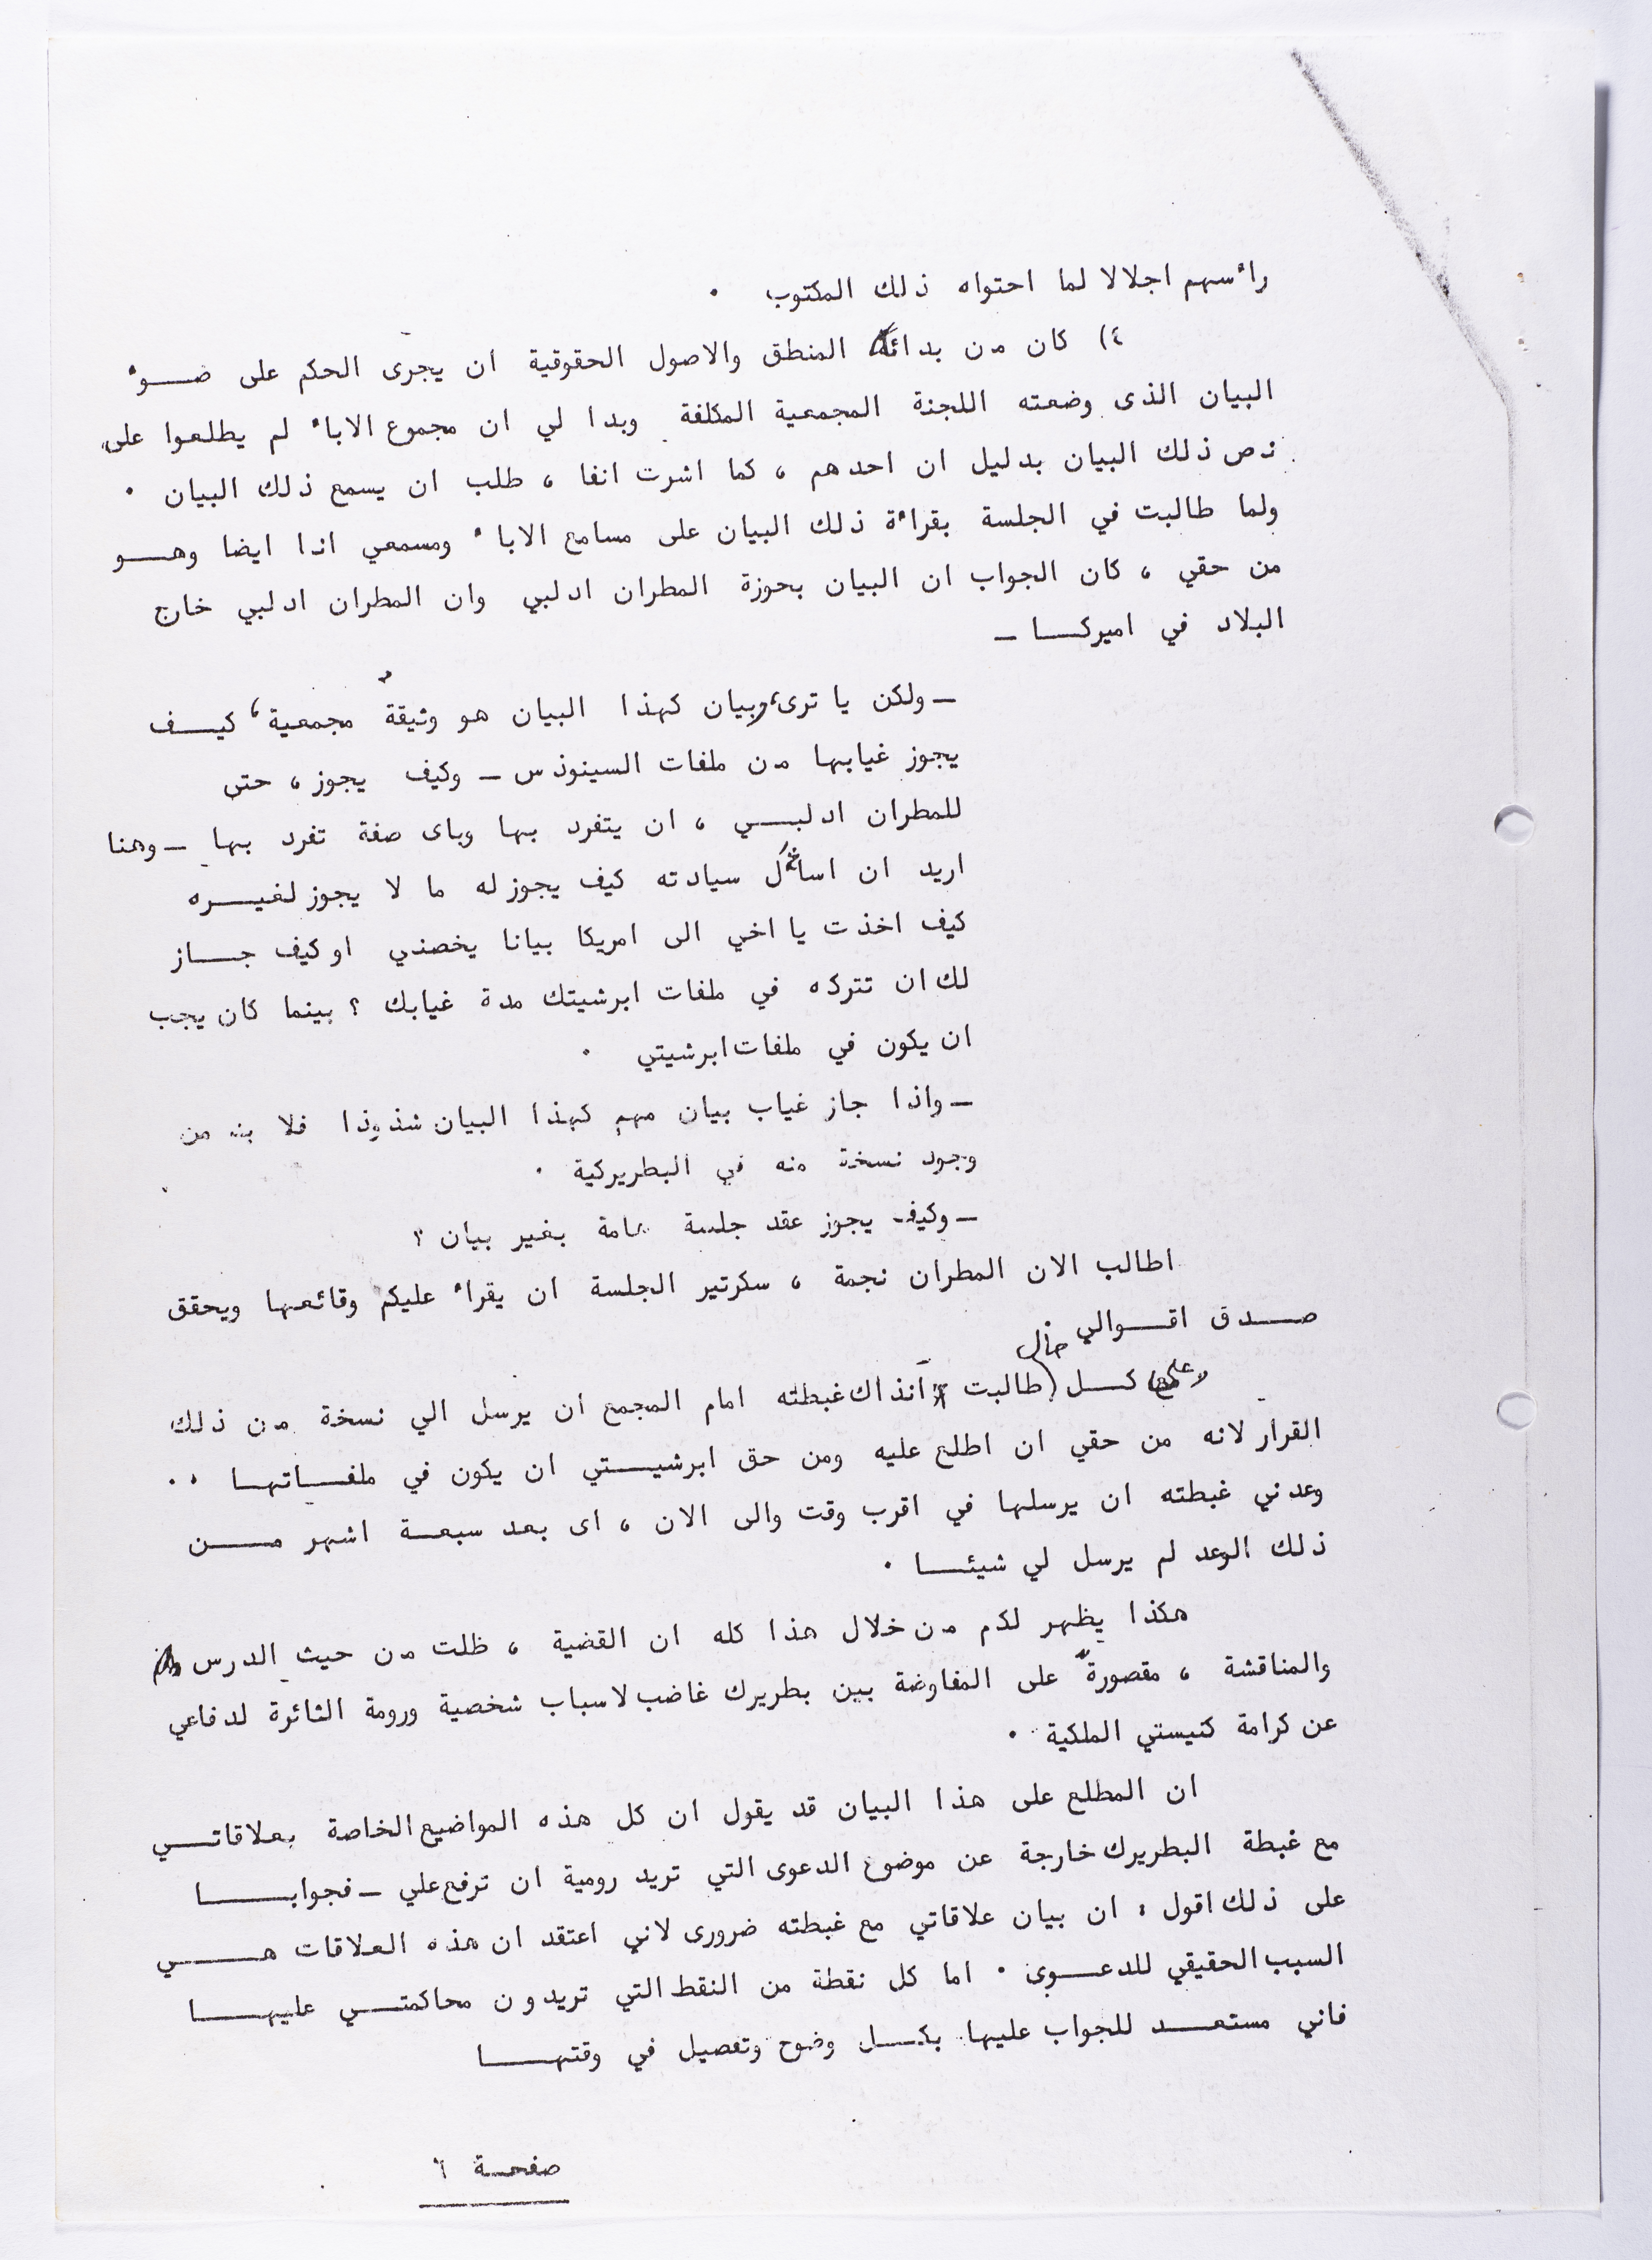 راءسهم اجلالا لما احتواه ذلك المكتوب .
٤) كان من بدائه المنطق والاصول الحقوقية ان يجرى الحكم على ضـــوء
البيان الذى وضعته اللجنة المجمعية المكلفة وبدا لي ان مجموع الاباء لم يطلعوا على
نص ذلك البيان بدليل ان احدهم ، كما اشرت انفا ، طلب ان يسمع ذلك البيان .
ولما طالبت في الجلسة بقراءة ذلك البيان على مسامع الاباء ومسمعي انا ايضا وهـــو
من حقي ، كان الجواب ان البيان بحوزة المطران ادلبي وان المطران ادلبي خارج
البلاد في اميركـــا ـ
ـ ولكن يا ترى، وبيان كهذا البيان هو وثيقة مجمعية ، كيـــف
يجوز غيابها من ملفات السينوذس ـ وكيف يجوز ، حتى
للمطران ادلبـــي ، ان يتفرد بها وباى صفة تفرد بها ـ وهنا
اريد ان اسائل سيادته كيف يجوز له ما لا يجوز لغيـــره
كيف اخذت يا اخي الى امريكا بيانا يخصني او كيف جـــاز
لك ان تتركه في ملفات ابرشيتك مدة غيابك ؟ بينما كان يجب
ان يكون في ملفات ابرشيتي .
ـ واذا جاز غياب بيان مهم كهذا البيان شذوذا فلا بد من
وجود نسخة منه في البطريركية .
ـ وكيف يجوز عقد جلسة عامة بغير بيان ؟
اطالب الان المطران نجمة ، سكرتير الجلسة ان يقراء عليكم وقائعها ويحقق
صـــدق اقـــوالي
وعلى كـــل حال طالبت آنذاك غبطته امام المجمع ان يرسل الي نسخة من ذلك
القرار لانه من حقي ان اطلع عليه ومن حق ابرشيـــتي ان يكون في ملفـــاتهـــا . .
وعدني غبطته ان يرسلها في اقرب وقت والى الان ، اى بعد سبعـــة اشهر مـــن
ذلك الوعد لم يرسل لي شيئـــا .
هكذا يظهر لكم من خلال هذا كله ان القضية ، ظلت من حيث الدرس
والمناقشة ، مقصورة على المفاوضة بين بطريرك غاضب لاسباب شخصية ورومة الثائرة لدفاعي
عن كرامة كنيستي الملكية .
ان المطلع على هذا البيان قد يقول ان كل هذه المواضيع الخاصة بعلاقاتـــي
مع غبطة البطريرك خارجة عن موضوع الدعوى التي تريد رومية ان ترفع علي ـ فجوابـــا
على ذلك اقول : ان بيان علاقاتي مع غبطته ضرورى لاني اعتقد ان هذه العلاقات هـــي
السبب الحقيقي للدعـــوى . اما كل نقطة من النقط التي تريدون محاكمتـــي عليهـــا
فاني مستعـــد للجواب عليها بكـــل وضوح وتفصيل في وقتهـــا
صفحـة ٦